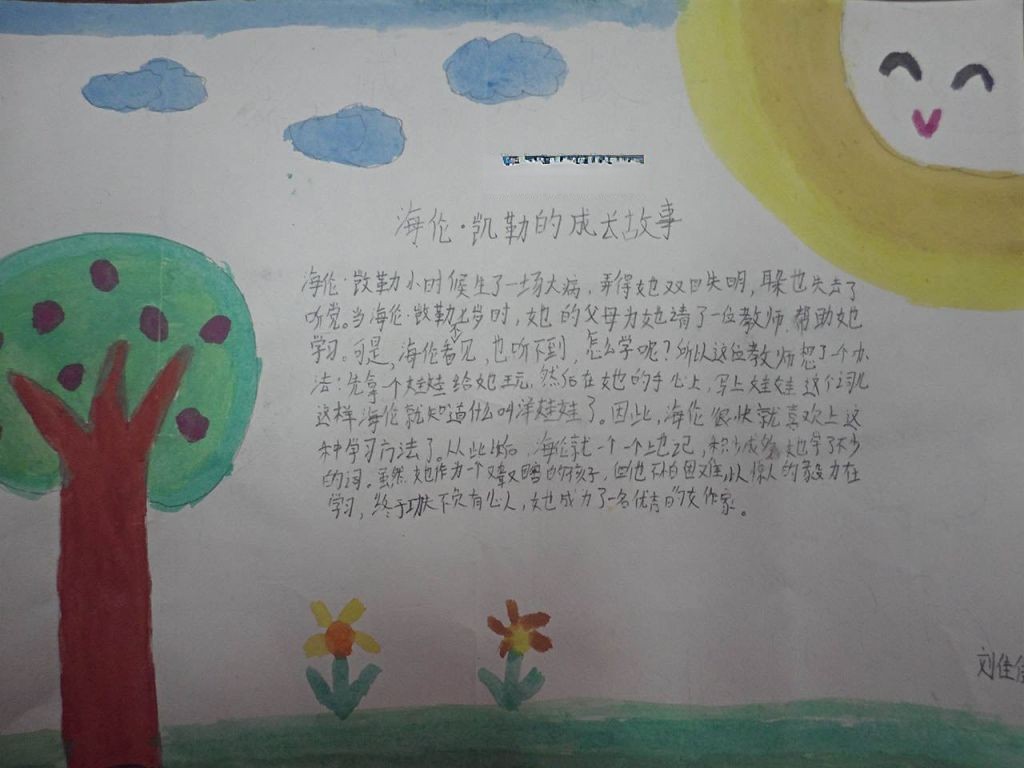 海伦·凯勒的成长故事
海伦·凯勒小时候生了一场大病，弄得她双目失明，耳朵也失去了
听觉。当海伦·凯勒七岁时，她的父母为她请了一位教师，帮助她
学习。可是，海伦看不见，也听不到，怎么学呢？所以这位教师想了一个办
法：先拿一个娃娃给她玩，然后在她的手心上，写上娃娃这个词儿
这样海伦就知道什么叫洋娃娃了。因此，海伦很快就喜欢上这
种学习方法了。从此以后，海伦就一个一个地记，积少成多，她学了不少
的词。虽然她作为一个又聋又瞎的孩子，但她不怕困难，以惊人的毅力在
学习，终于功夫不负有心人，她成为了一名优秀的女作家。
刘佳